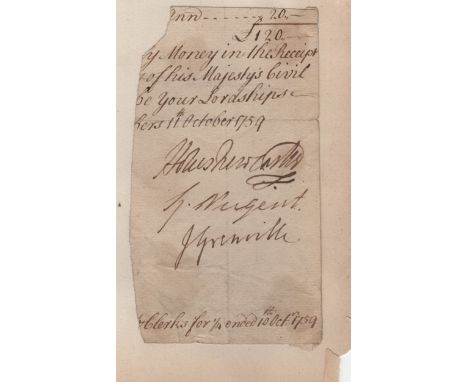 Ann ---------- 20.--
£120.--
y Money in the Receipt
of his Majesty's Civil
be Your Lordships
bers 11th October 1759
Holles Newcastle
R. Nugent.
J Grenville
Clerks for 1/4 ended 10th Octr 1759